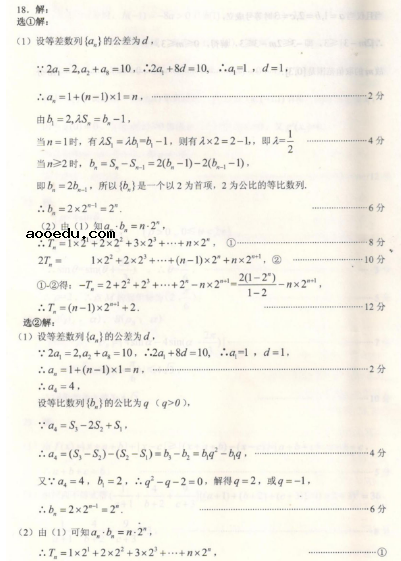 18. 解:
选①解:
(1) 设等差数列{aₙ}的公差为d,
∵2a₁=2,a₂+a₈=10, ∴2a₁+8d=10, ∴a₁=1 , d=1,
∴aₙ=1+(n−1)×1=n, ……………………2 分
由b₁=2,λSₙ=bₙ−1,
当n=1时,有λS₁=λb₁=b₁−1,则有λ×2=2−1,,即λ=1/2 ……………………4 分
当n≥2时, bₙ=Sₙ−Sₙ₋₁=2(bₙ−1)−2(bₙ₋₁−1),
即bₙ=2bₙ₋₁,所以{bₙ}是一个以 2 为首项,2 为公比的等比数列.
∴bₙ=2×2ⁿ⁻¹=2ⁿ. ……………………6 分
(2) 由(1)知aₙ·bₙ=n·2ⁿ,
aooedu.com
∴Tₙ=1×2¹+2×2²+3×2³+⋯+n×2ⁿ, ①……………………8 分
2Tₙ= 1×2²+2×2³+⋯+(n−1)×2ⁿ+n×2ⁿ⁺¹,② ……………………10 分
①-②得: −Tₙ=2+2²+2³+⋯+2ⁿ−n×2ⁿ⁺¹=2(1−2ⁿ)/(1−2)−n×2ⁿ⁺¹,
∴Tₙ=(n−1)×2ⁿ⁺¹+2. ……………………12 分
选②解:
(1) 设等差数列{aₙ}的公差为d,
∵2a₁=2,a₂+a₈=10, ∴2a₁+8d=10, ∴a₁=1 , d=1,
∴aₙ=1+(n−1)×1=n, ……………………2 分
∴a₄=4,
设等比数列{bₙ}的公比为q (q>0),
∵a₄=S₃−2S₂+S₁,
∴a₄=(S₃−S₂)−(S₂−S₁)=b₃−b₂=b₁q²−b₁q, ……………………4 分
又∵a₄=4, b₁=2,∴q²−q−2=0,解得q=2,或q=−1,
∴bₙ=2×2ⁿ⁻¹=2ⁿ. ……………………6 分
(2) 由(1)可知aₙ·bₙ=n·2ⁿ,
∴Tₙ=1×2¹+2×2²+3×2³+⋯+n×2ⁿ, ……………………①